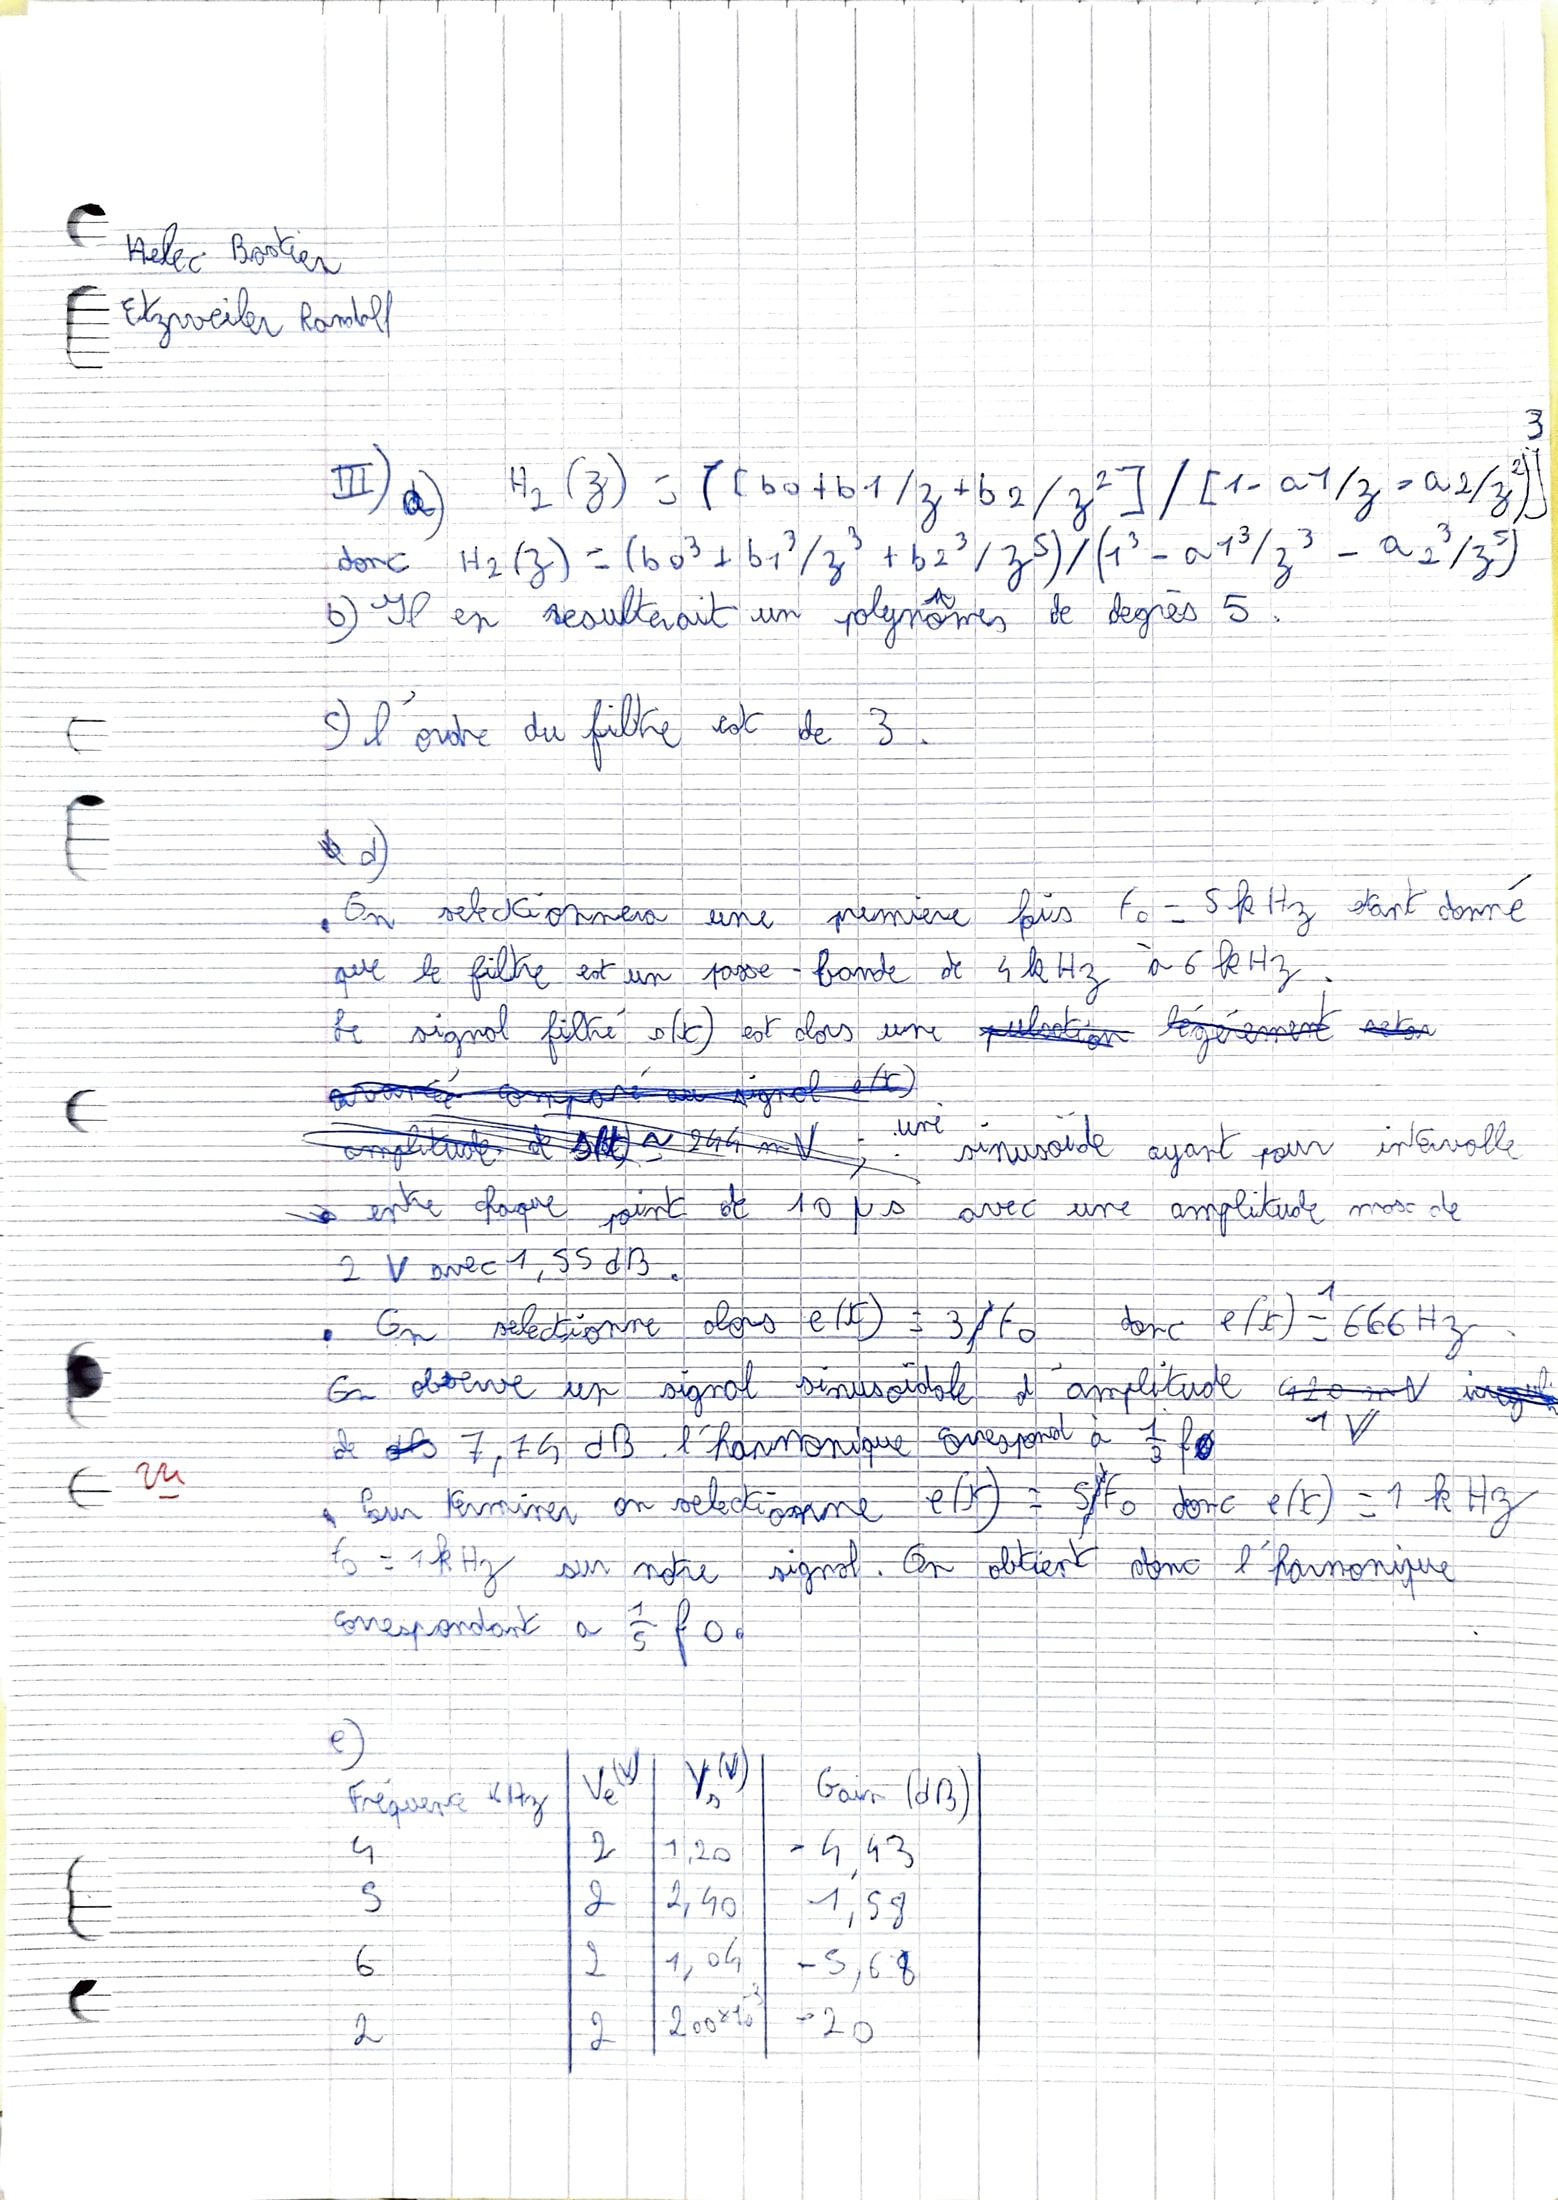 Helec Bastien
Etzweiler Randolf
III) a) H2(z) = [[b0+b1/z+b2/z²] / [1-a1/z-a2/z²]]³
donc H2(z) = (b0³ + b1³/z³ + b2³/z⁵)/(1³ - a1³/z³ - a2³/z⁵)
b) Il en resulterait un polynômes de degrès 5.
c) l'ordre du filtre est de 3.
d)
. On selectionnera une première fois f0 = 5 kHz etant donné
que le filtre est un passe-bande de 4 kHz à 6 kHz.
Le signal filtré s(t) est alors une pulsation légèrement
comparé au signal e(t)
amplitude de s(t) ≃ 244 mV ; une sinusoïde ayant pour intervalle
entre chaque point de 10 µs avec une amplitude max de
2 V avec 1,55 dB.
. On selectionne alors e(t) = 3/f0 donc e(t) = 1666 Hz.
On observe un signal sinusoïdale d'amplitude 420 mV
1 V
de 7,74 dB. l'harmonique correspond à 1/3 f0
. Pour terminer on selectionne e(t) = 5/f0 donc e(t) = 1 kHz
f0 = 1 kHz sur notre signal. On obtient donc l'harmonique
correspondant a 1/5 f0.
vu
e)
Fréquence kHz | Ve (V) | Vs (V) | Gain (dB)
4 | 2 | 1,20 | -4,43
5 | 2 | 2,40 | -1,58
6 | 2 | 1,04 | -5,68
2 | 2 | 200×10⁻³ | -20